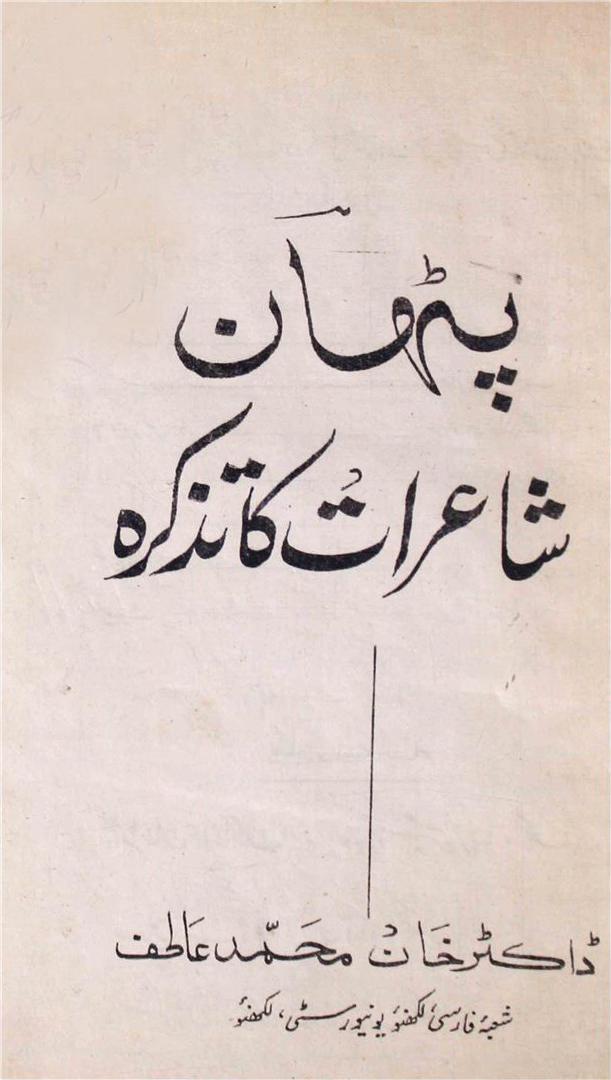 پٹھان
شاعرات کا تذکرہ
ڈاکٹر خان محمّد عاطف
شعبۂ فارسی لکھنؤ یونیورسٹی، لکھنؤ